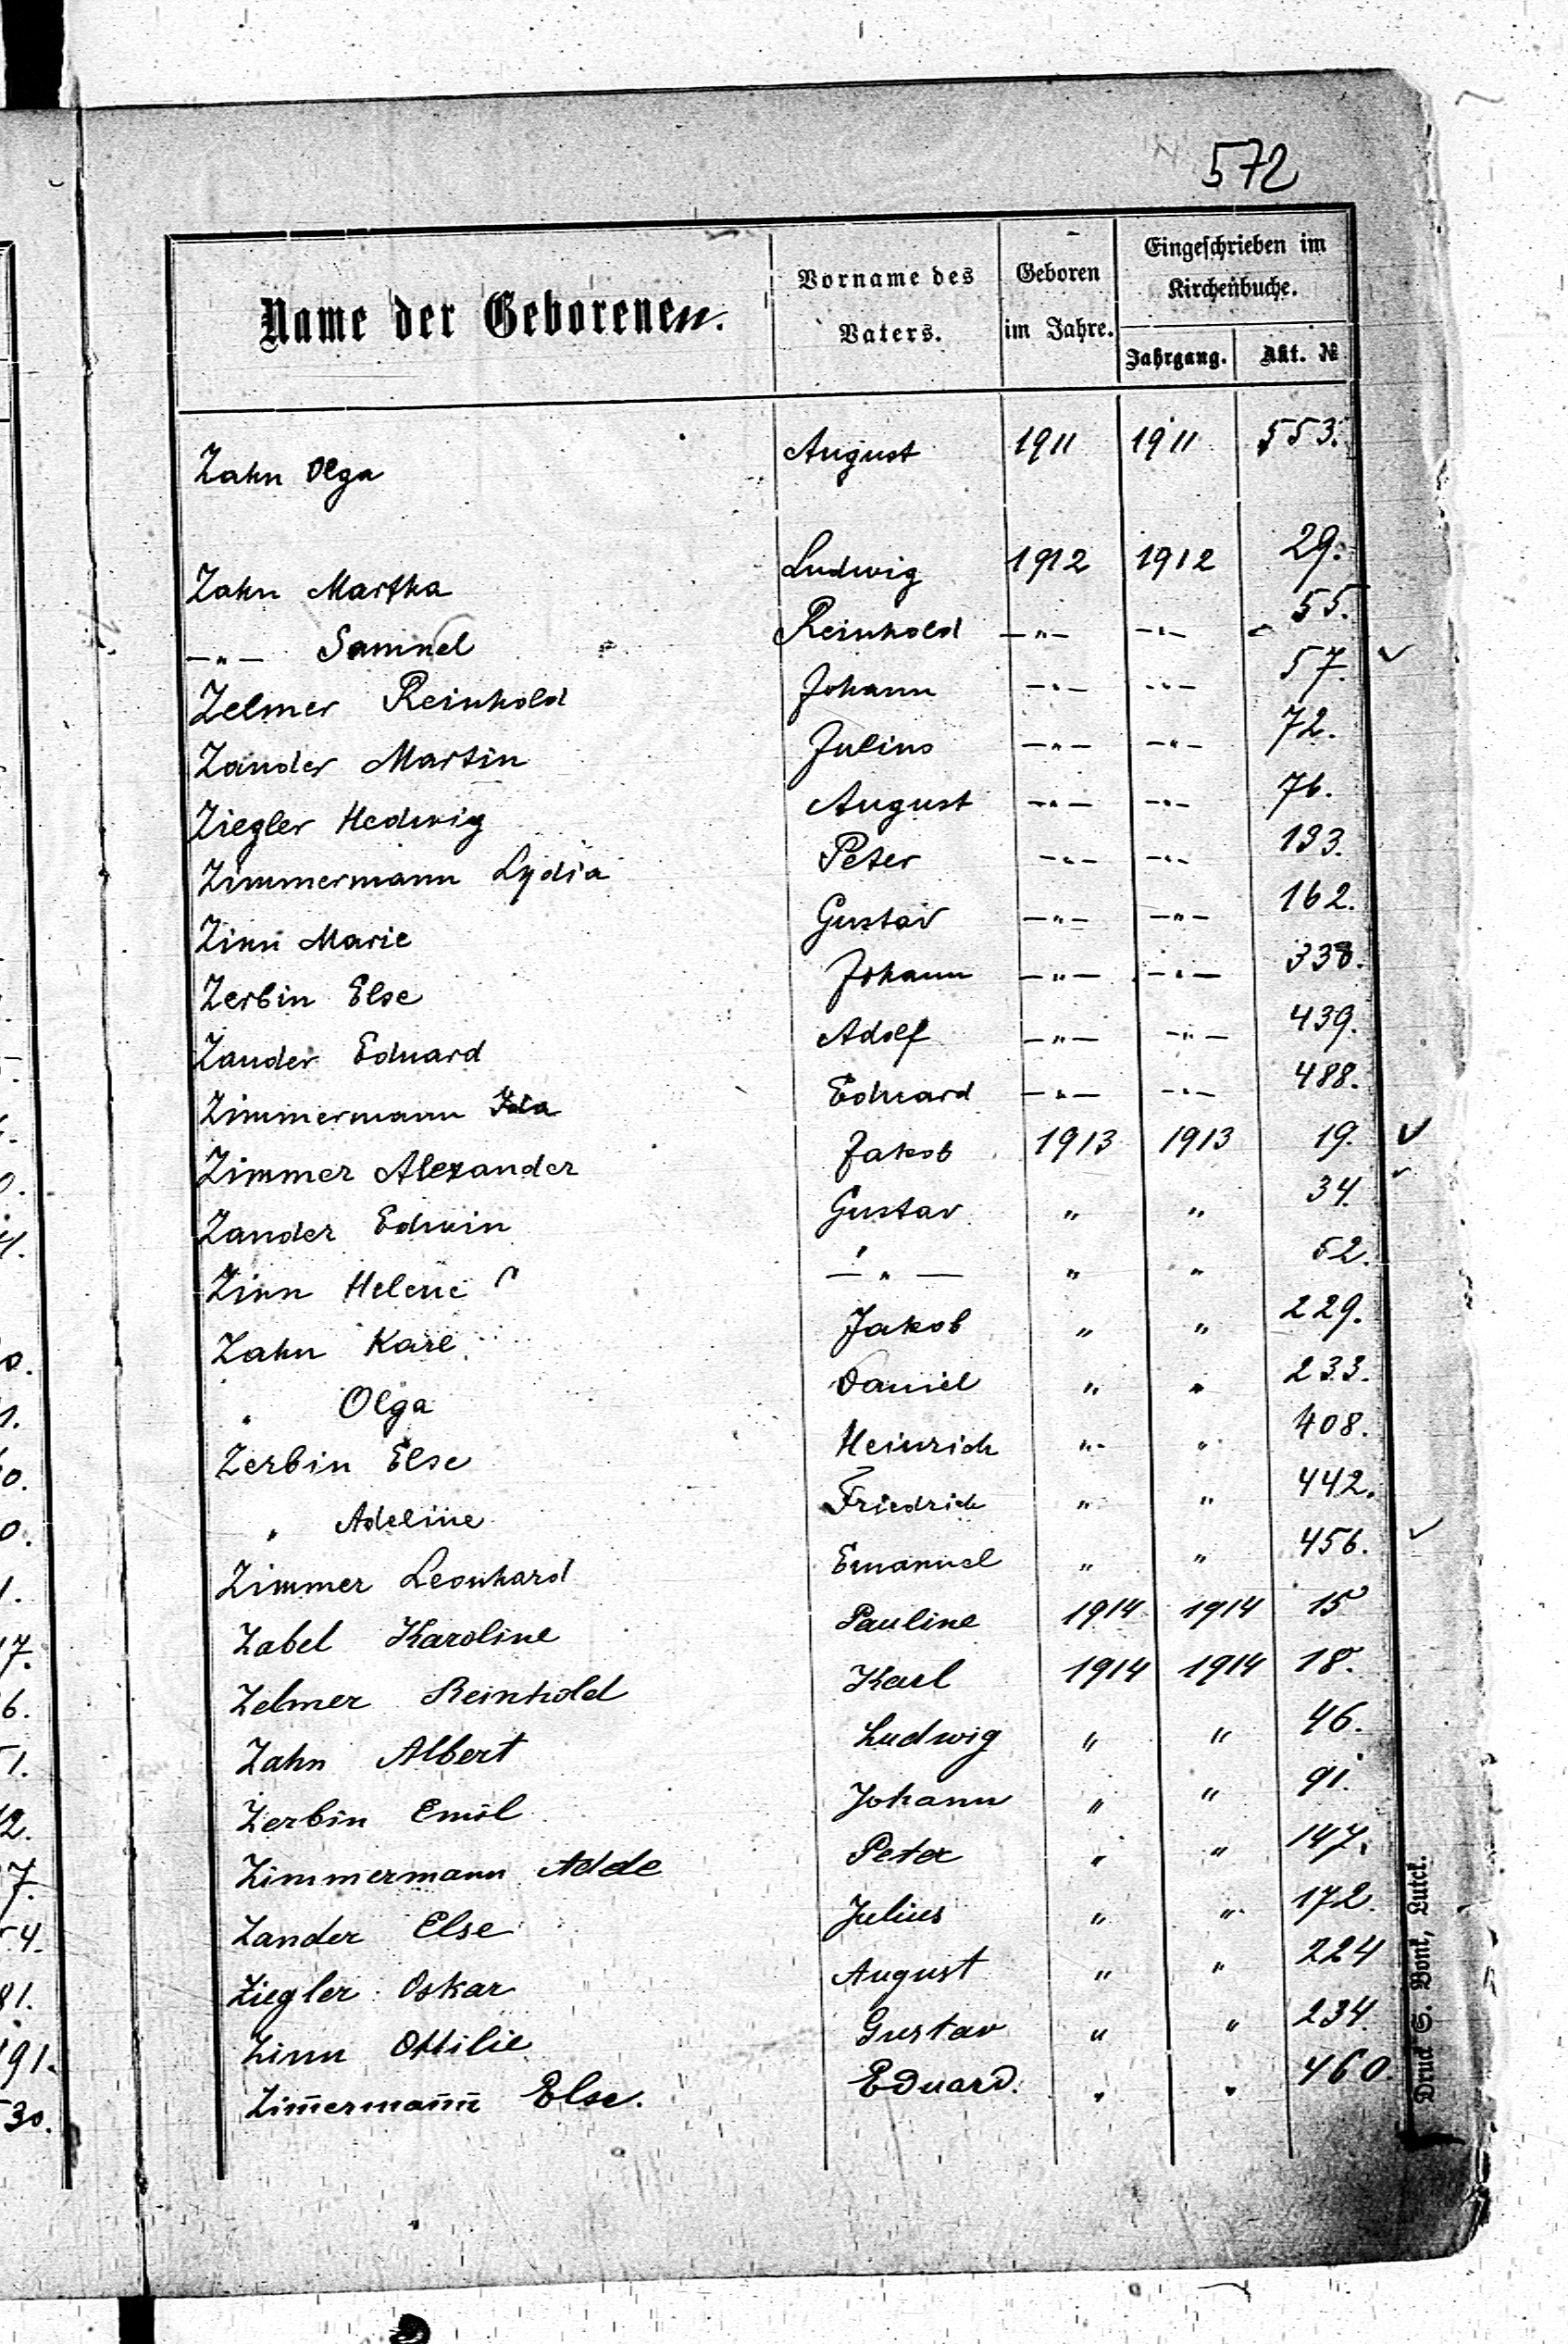 572
Name der Geborenen. Vorname des Vaters. Geboren im Jahre. Eingeschrieben im Kirchenbuche.
Jahrgang. Akt. №
Zahn Olga August 1911 1911 553.
Zahn Martha Ludwig 1912 1912 29.
—„— Samuel Reinhold —„— —„— 55.
Zelmer Reinhold Johann —„— —„— 57. ✓
Zander Martin Julius —„— —„— 72.
Ziegler Hedwig August —„— —„— 76.
Zimmermann Lydia Peter —„— —„— 133.
Zinn Marie Gustav —„— —„— 162.
Zerbin Else Johann —„— —„— 338.
Zander Eduard Adolf —„— —„— 439.
Zimmermann Ida Eduard —„— —„— 488.
Zimmer Alexander Jakob 1913 1913 19. ✓
Zander Edwin Gustav „ „ 34. ✓
Zinn Helene —„— „ „ 52.
Zahn Karl Jakob „ „ 229.
„ Olga Daniel „ „ 233.
Zerbin Else Heinrich „ „ 408.
„ Adeline Friedrich „ „ 442.
Zimmer Leonhard Emanuel „ „ 456. ✓
Zabel Karoline Pauline 1914 1914 15
Zelmer Reinhold Karl 1914 1914 18.
Zahn Albert Ludwig „ „ 46.
Zerbin Emil Johann „ „ 91.
Zimmermann Adde Peter „ „ 147.
Zander Else Julius „ „ 172.
Ziegler Oskar August „ „ 224
Zinn Ottilie Gustav „ „ 234.
Zim̄ermam̄n̄ Else. Eduard. „ „ 460.
Druck S. Bonk, Lutck.